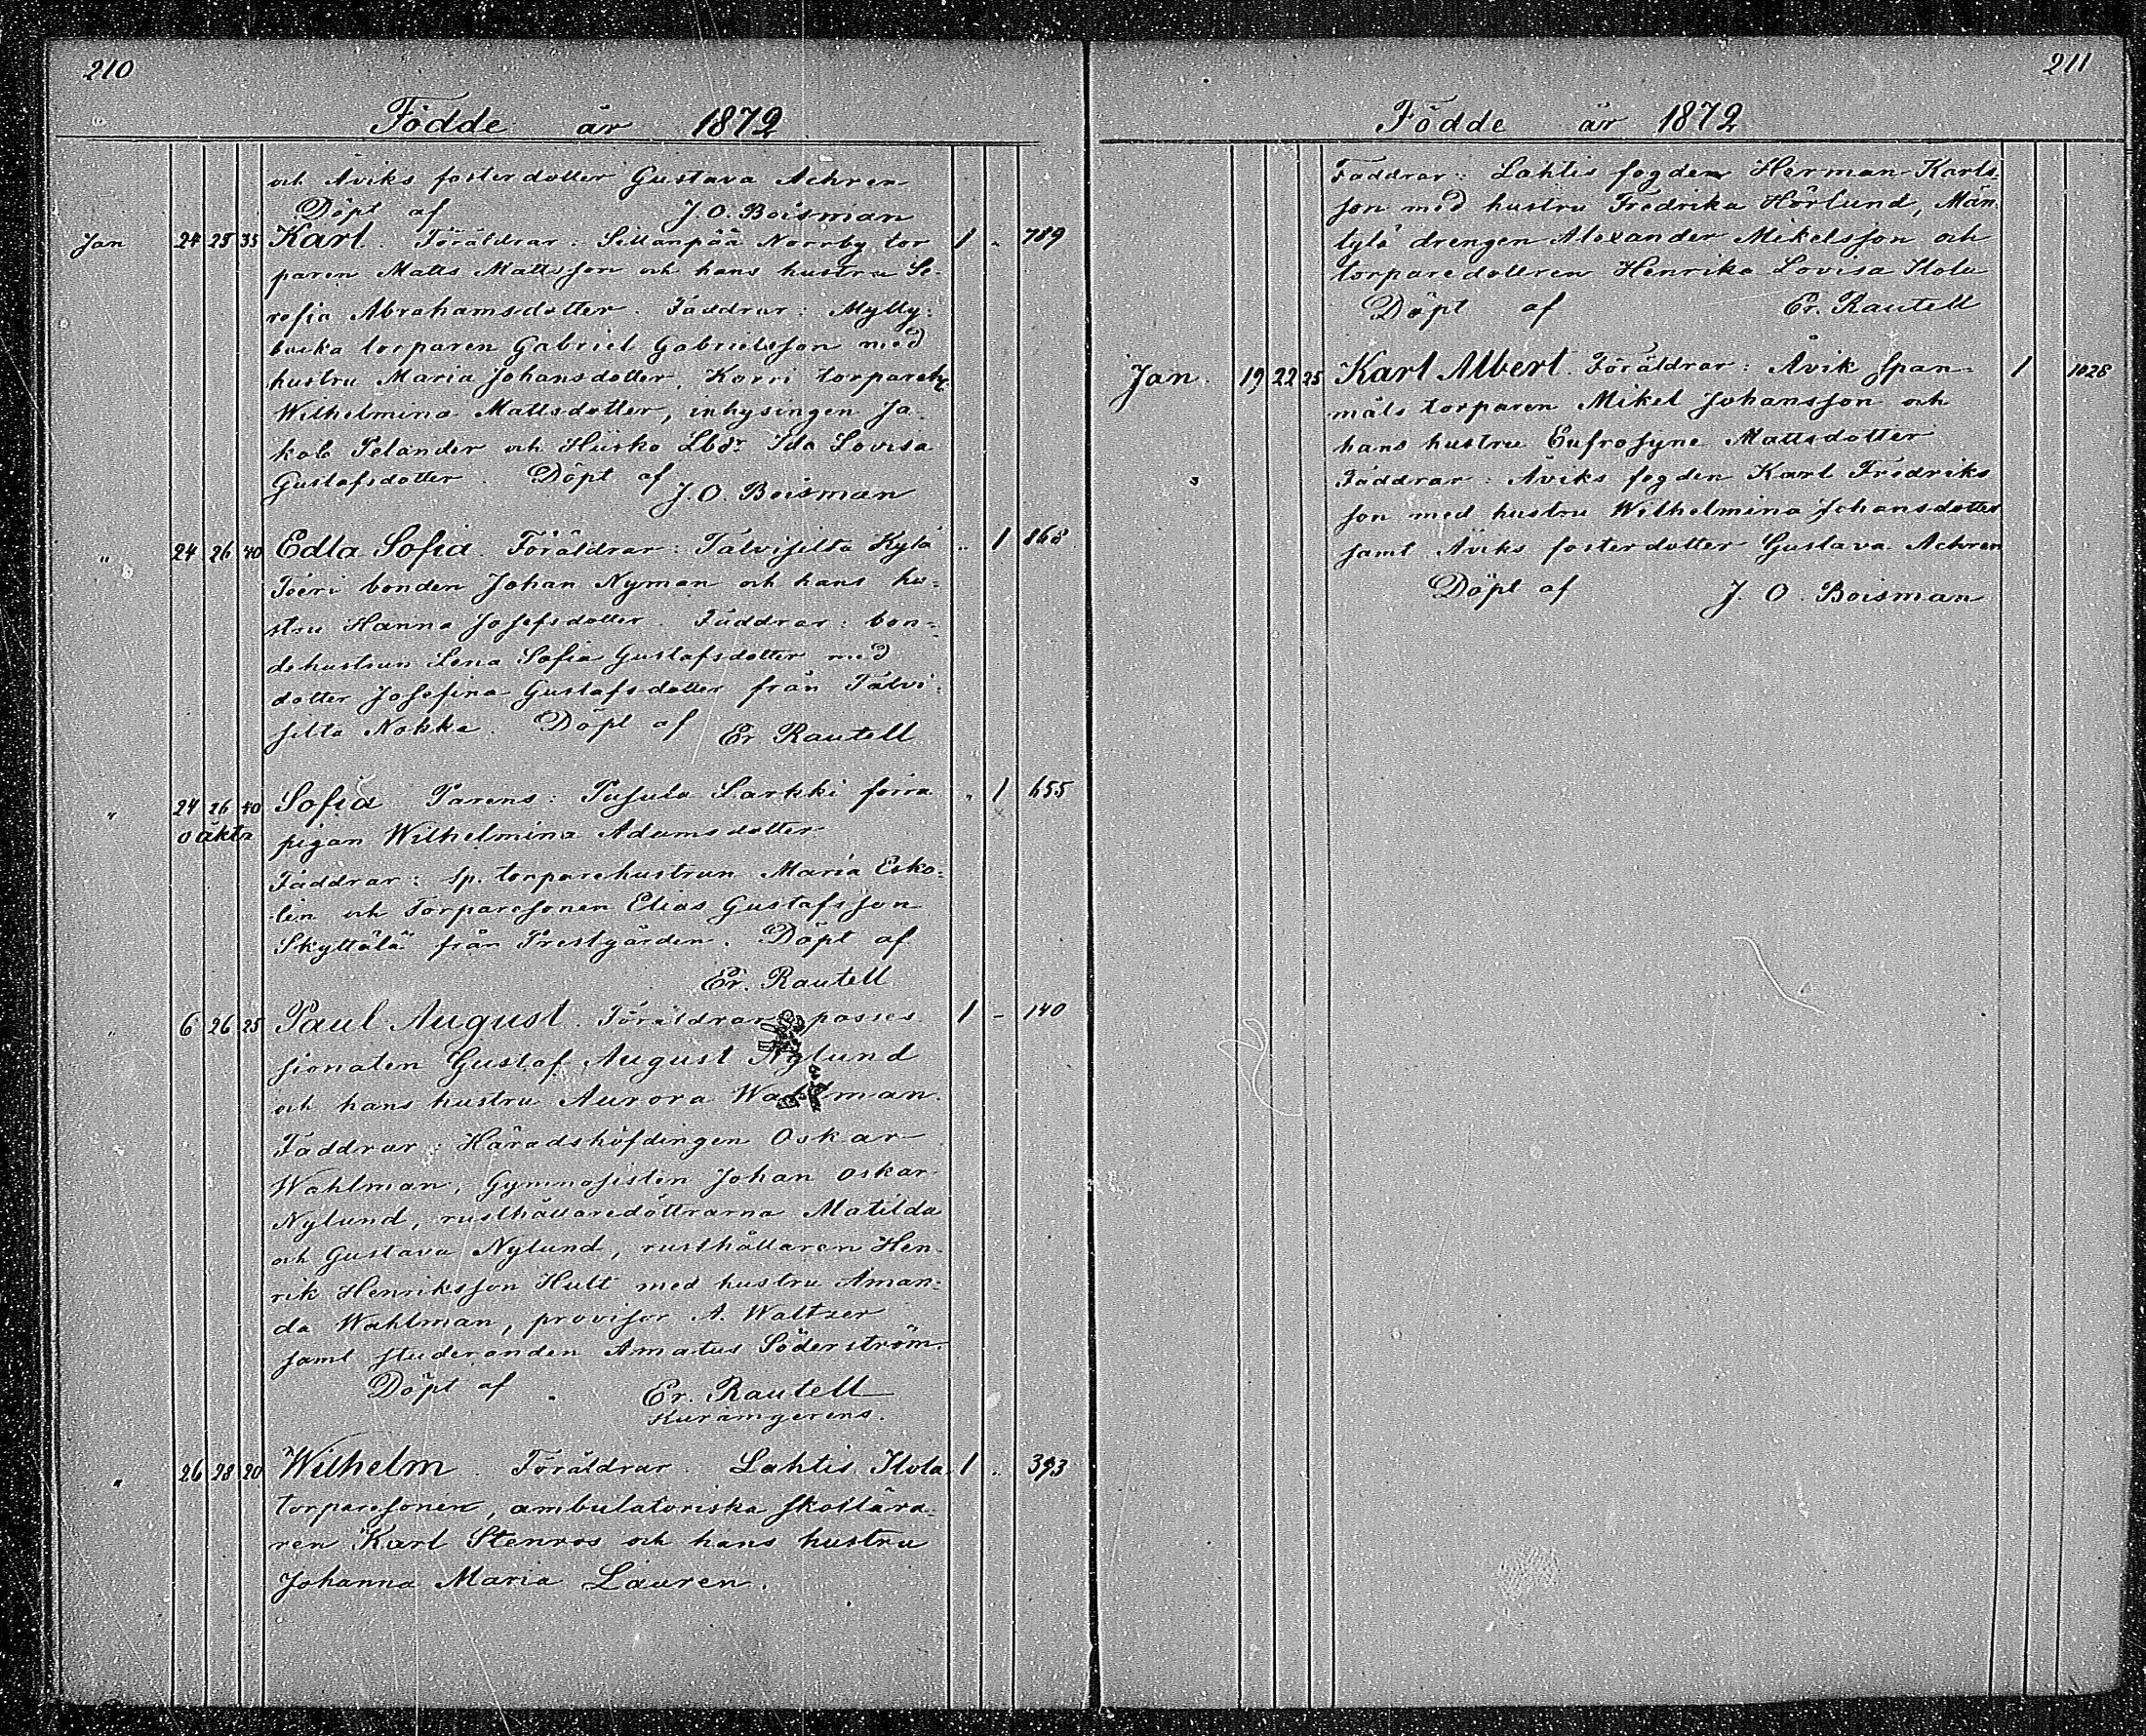 210
Födde år 1872
och Åviks fosterdotter Gustava Achren
Döpt af J. O. Boisman
Jan 24 25 35 Karl. Föräldrar: Sillanpää Norrby tor 1 " 789
paren Matts Mattsson och hans hustru Se-
rafia Abrahamsdotter. Faddrar: Mylly-
backa torparen Gabriel Gabrielsson med
hustru Maria Johansdotter, Korri torpareh
Wilhelmina Mattsdotter, inhysingen Ja
kob Pelander och Hürko Lbdr Ida Lovisa
Gustafsdotter. Döpt af J. O. Boisman
" 24 26 40 Edla Sofia. Föräldrar: Talviselta Kylä " 1 168
Töeri bonden Johan Nyman och hans hu-
stru Hanna Josefsdotter. Faddrar: bon-
dehustrun Lena Sofia Gustafsdotter med
dotter Josefina Gustafsdotter från Talvi-
selta Nokka. Döpt af Er. Rautell
" 24 26 40 Sofia Parens: Pusula Larkki förra " 1 655
oäkta pigan Wilhelmina Adamsdotter
Faddrar: sp. torparehustrun Maria Esko-
lin och Torparesonen Elias Gustafsson
Skyttälä från Prestgården. Döpt af
Er. Rautell
" 6 26 25 Paul August. Föräldrar posses 1 - 140
sionaten Gustaf August Nylund
och hans hustru Aurora Wahlman.
Faddrar: Häradshöfdingen Oskar
Wahlman, Gymnasisten Johan Oskar
Nylund, rusthållaredöttrarna Matilda
och Gustava Nylund, rusthållaren Hen-
rik Henriksson Hult med hustru Aman-
da Wahlman, provisor A. Waltzer
samt studeranden Amatus Söderström.
Döpt af Er. Rautell
Kuramgerens.
" 26 28 20 Wilhelm. Föräldrar. Lahtis Ilola 1 " 393
torparesonen, ambulatoriska skollära-
ren Karl Stenros och hans hustru
Johanna Maria Lauren.
211
Födde år 1872
Faddrar: Lahtis fogden Herman Karls
son med hustru Fredrika Hörlund, Män
tylä drengen Alexander Mikelsson och
torparedottren Henrika Lovisa Ilola
Döpt af Er. Rautell
Jan. 19 22 25 Karl Albert. Föräldrar: Åvik Span- 1 1028
mäls torparen Mikel Johansson och
hans hustru Eufrosyne Mattsdotter
Faddrar: Åviks fogden Karl Fredriks
son med hustru Wilhelmina Johansdotter
samt Åviks fosterdotter Gustava Achren
Döpt af J. O. Boisman